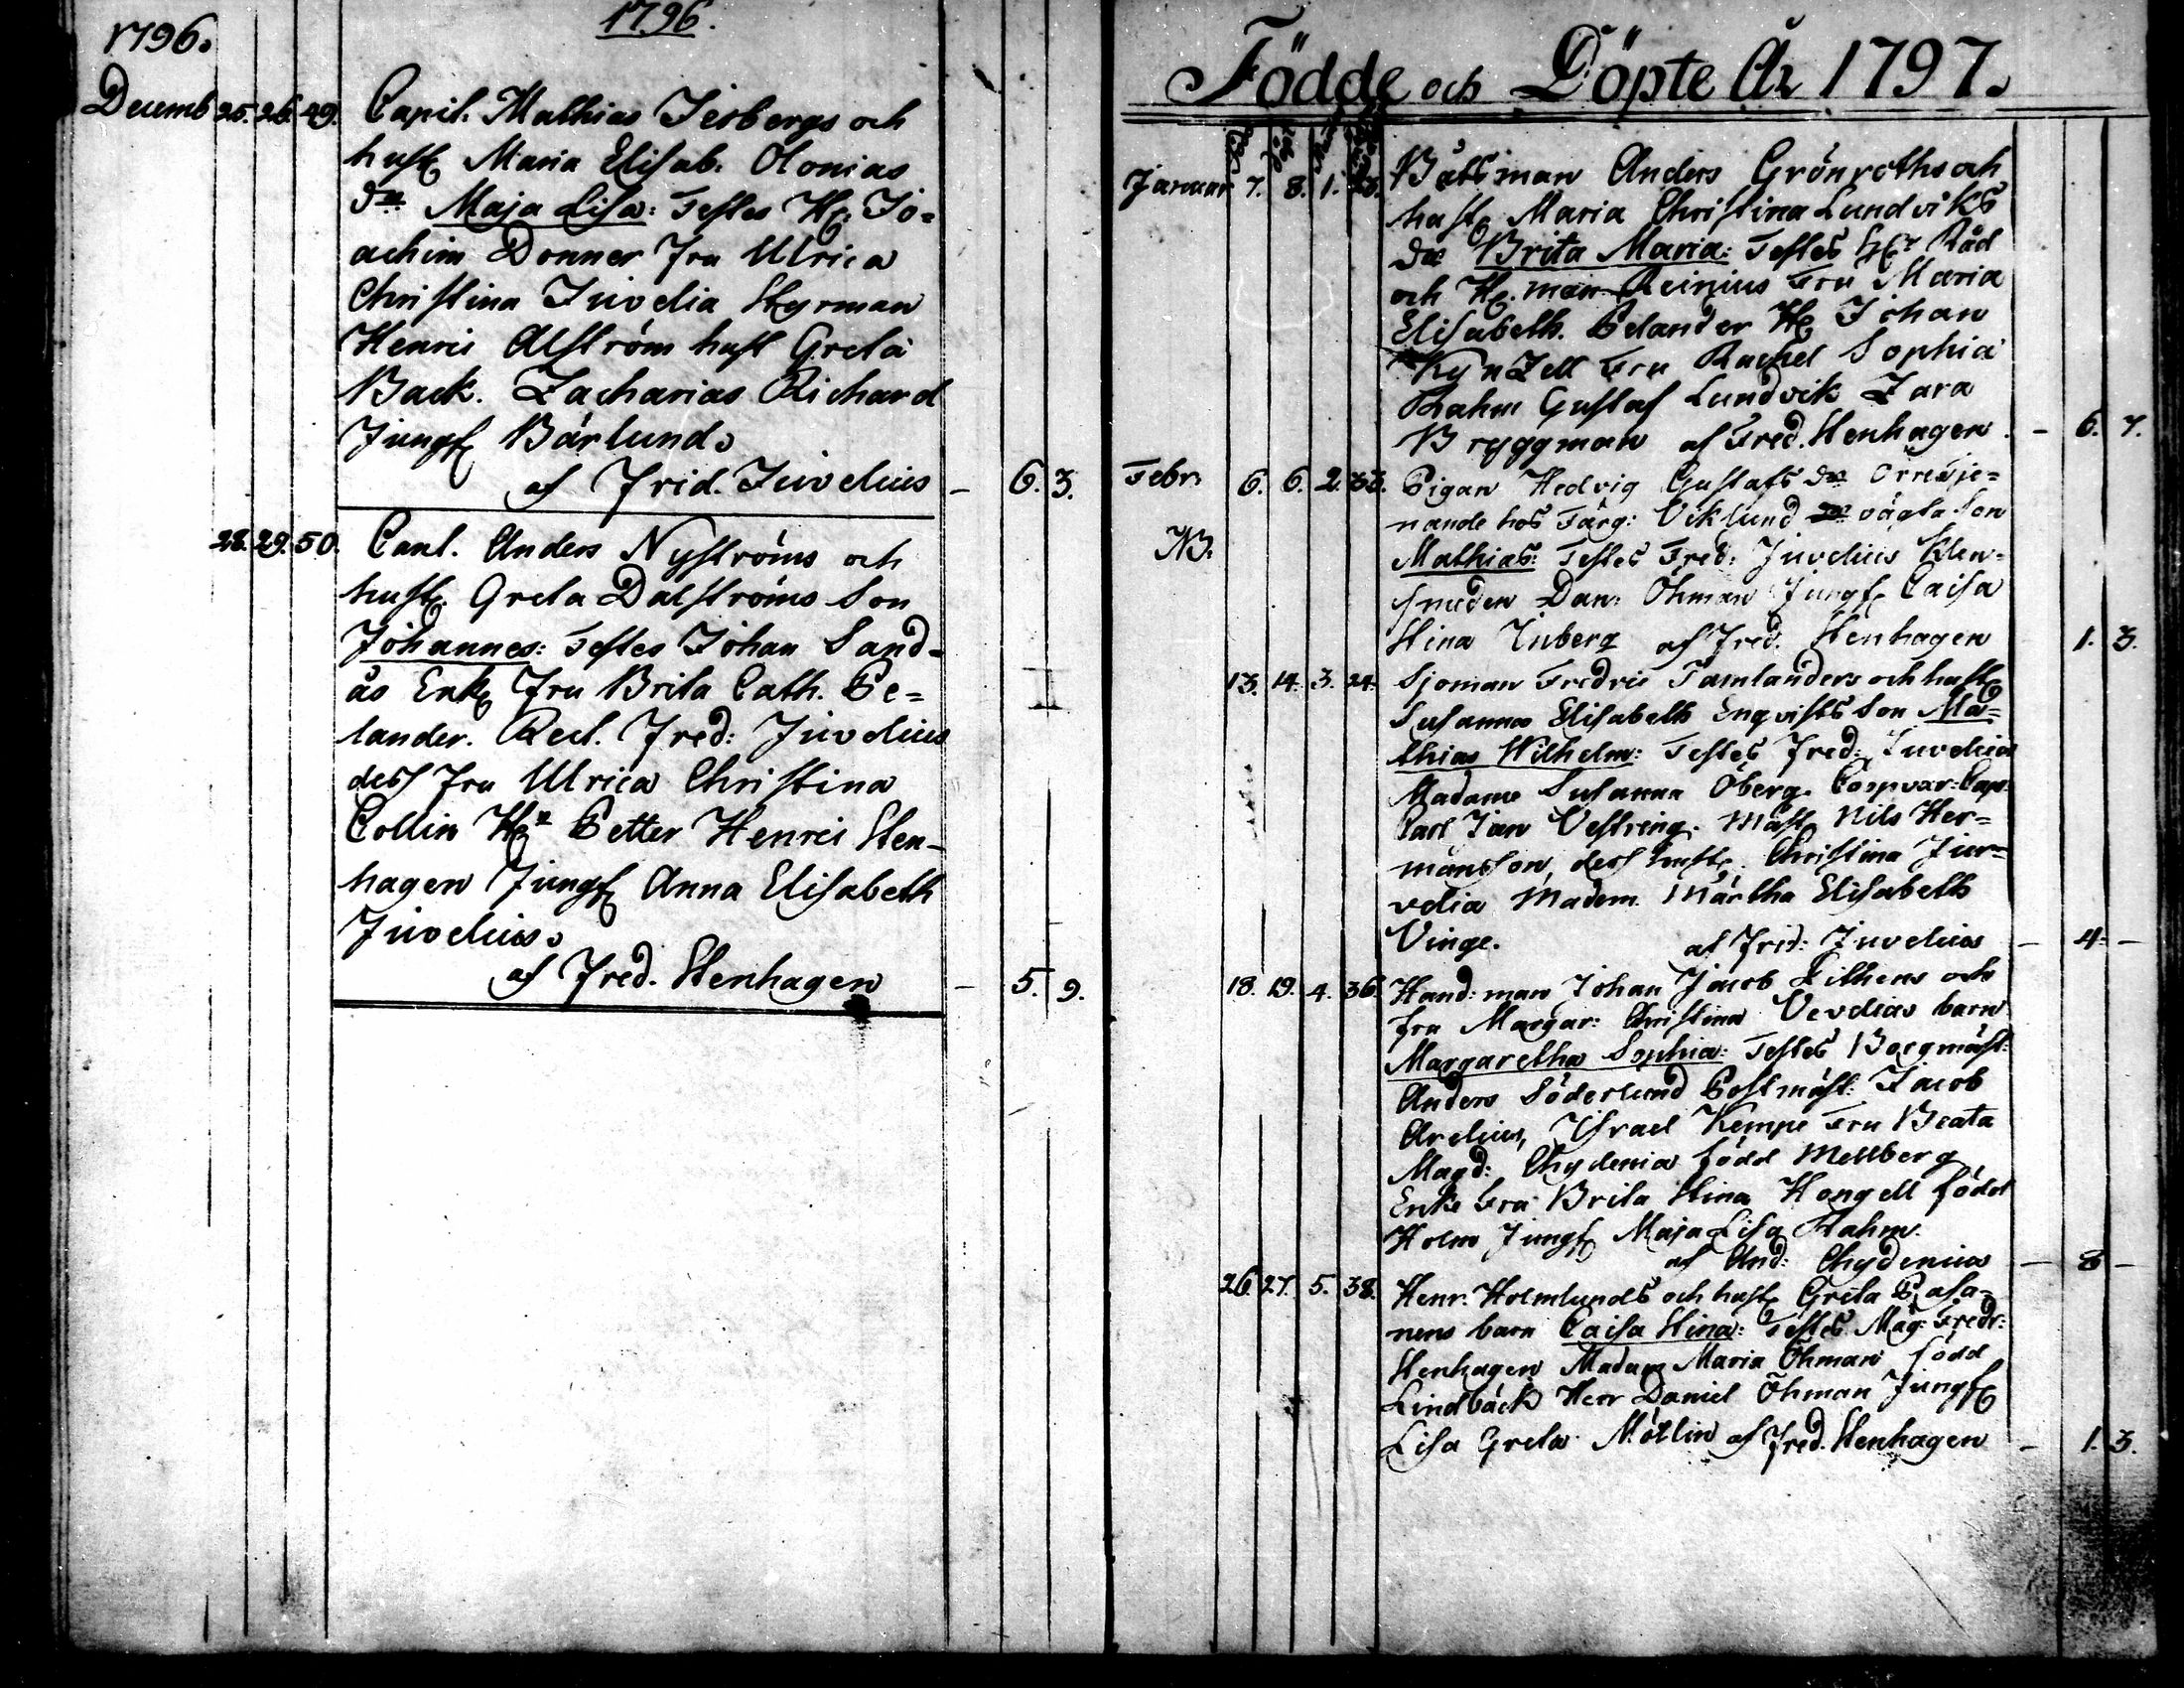 1796.
1796.
Decemb 25. 26. 49. Capit. Mathias Isbergs och
hust Maria Elisab. Olonias
dr Maja Lisa: Testes Hr. Jo=
achim Donner Fru Ulrica
Christina Juvelia Styrman
Henric Alström hust Greta
Back. Zacharias Richard
Jungf Bärlund.
af Frid. Juvelius – 6. 3.
28. 29. 50. Carl. Anders Nyströms och
hust. Greta Dalströms Son
Johannes: Testes Johan Sand=
ås Enk Fru Brita Cath. Pe=
lander. Rect. Fred: Juvelius
dess Fru Ulrica Christina
Collin Hr Petter Henric Sten-
hagen Jungf Anna Elisabeth
Juvelius.
af Fred. Stenhagen – 5. 9.
Födde och Döpte År 1797.
Januar 7. 8. 1. 23. Båtsman Anders Grönroths och
hust Maria Christina Lundviks
dr Brita Maria: Testes Hr Råd
och H. man Reinius Fru Maria
Elisabeth. Pelander Hr Johan
Kynzell Fru Rachel Sophia
Rahm Gustaf Lundvik Zara
Bryggman af Fred. Stenhagen. – 6. 7.
Febr. 6. 6. 2. 33. Pigan Hedvig Gustafs dr Orre tje=
nande hos Färg: Viklund oägta Son
NB. Mathias: Testes Fred: Juvelius Klen-
smeden Dan: Öhman Jungf Caisa
Stina Inberg af Fred. Stenhagen 1. 3.
13. 14. 3. 24. Sjöman Fredric Tamlanders och hust
Susanna Elisabeth Enqvists Son Ma=
thias Wilhelm: Testes Fred: Juvelius
Madame Susanna Öberg. Coopvar: Cap:
Carl Jan Vestring. Mäst Nils Her=
manson, dess hust. Christina Juv=
velia Madem. Märtha Elisabeth
Vinge. af Frid: Juvelius – 4. –
18. 19. 4. 36. Hand: man Johan Jacob Lithens och
fru Margar: Christina Vevelias barn
Margaretha Sophia: Testes Borgmäst:
Anders Söderlund Postmäst: Jacob
Arelius, Israel Kempe Fru Beata
Magd: Chydenia född Mellberg
Enke Fru Brita Stina Hongell född
Holm Jungf Maja Lisa Rahm.
af And: Chydenius – 8 –
26. 27. 5. 38. Henr. Holmlunds och hust Greta Pasa=
nens barn Caisa Stina: Testes Mag: Fredr:
Stenhagen Madam Maria Öhman född
Lindbäck Herr Daniel Öhman Jungf
Lisa Greta Möllin af Fred. Stenhagen – 1. 3.